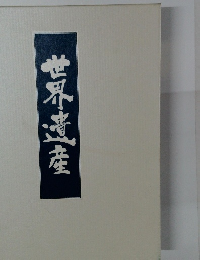 世界遺産